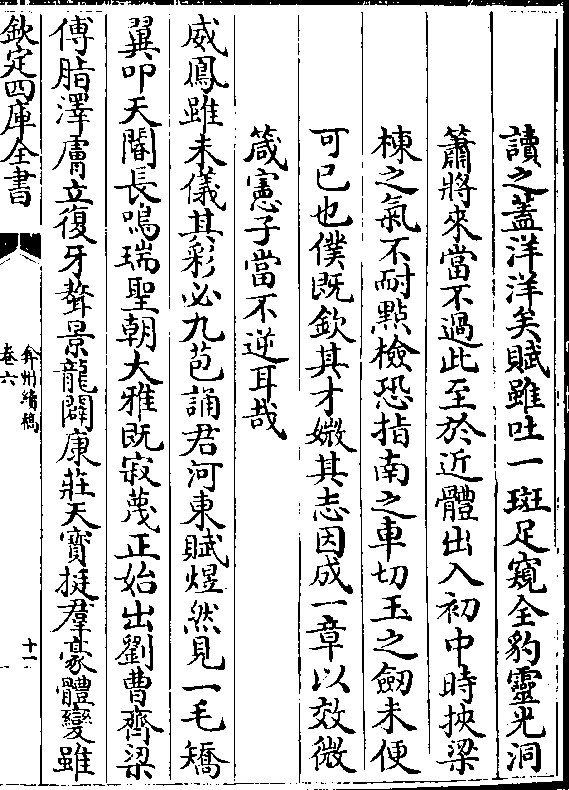 讀之蓋洋洋矣賦雖吐一斑足窺全豹靈光洞
簫將來當不過此至於近體出入初中時挾梁
棟之氣不耐點檢恐指南之車切玉之劒未便
可已也僕既欽其才媺其志因成一章以效微
箴憲子當不逆耳哉
威鳳雖未儀其彩必九苞誦君河東賦煜然見一毛矯
翼叩天閽長鳴瑞聖朝大雅既寂蔑正始出劉曹齊梁
傅脂澤膚立復牙聱景龍闢康莊天寳挺羣豪體變雖
欽定四庫全書
弇州續稿
卷六
十一